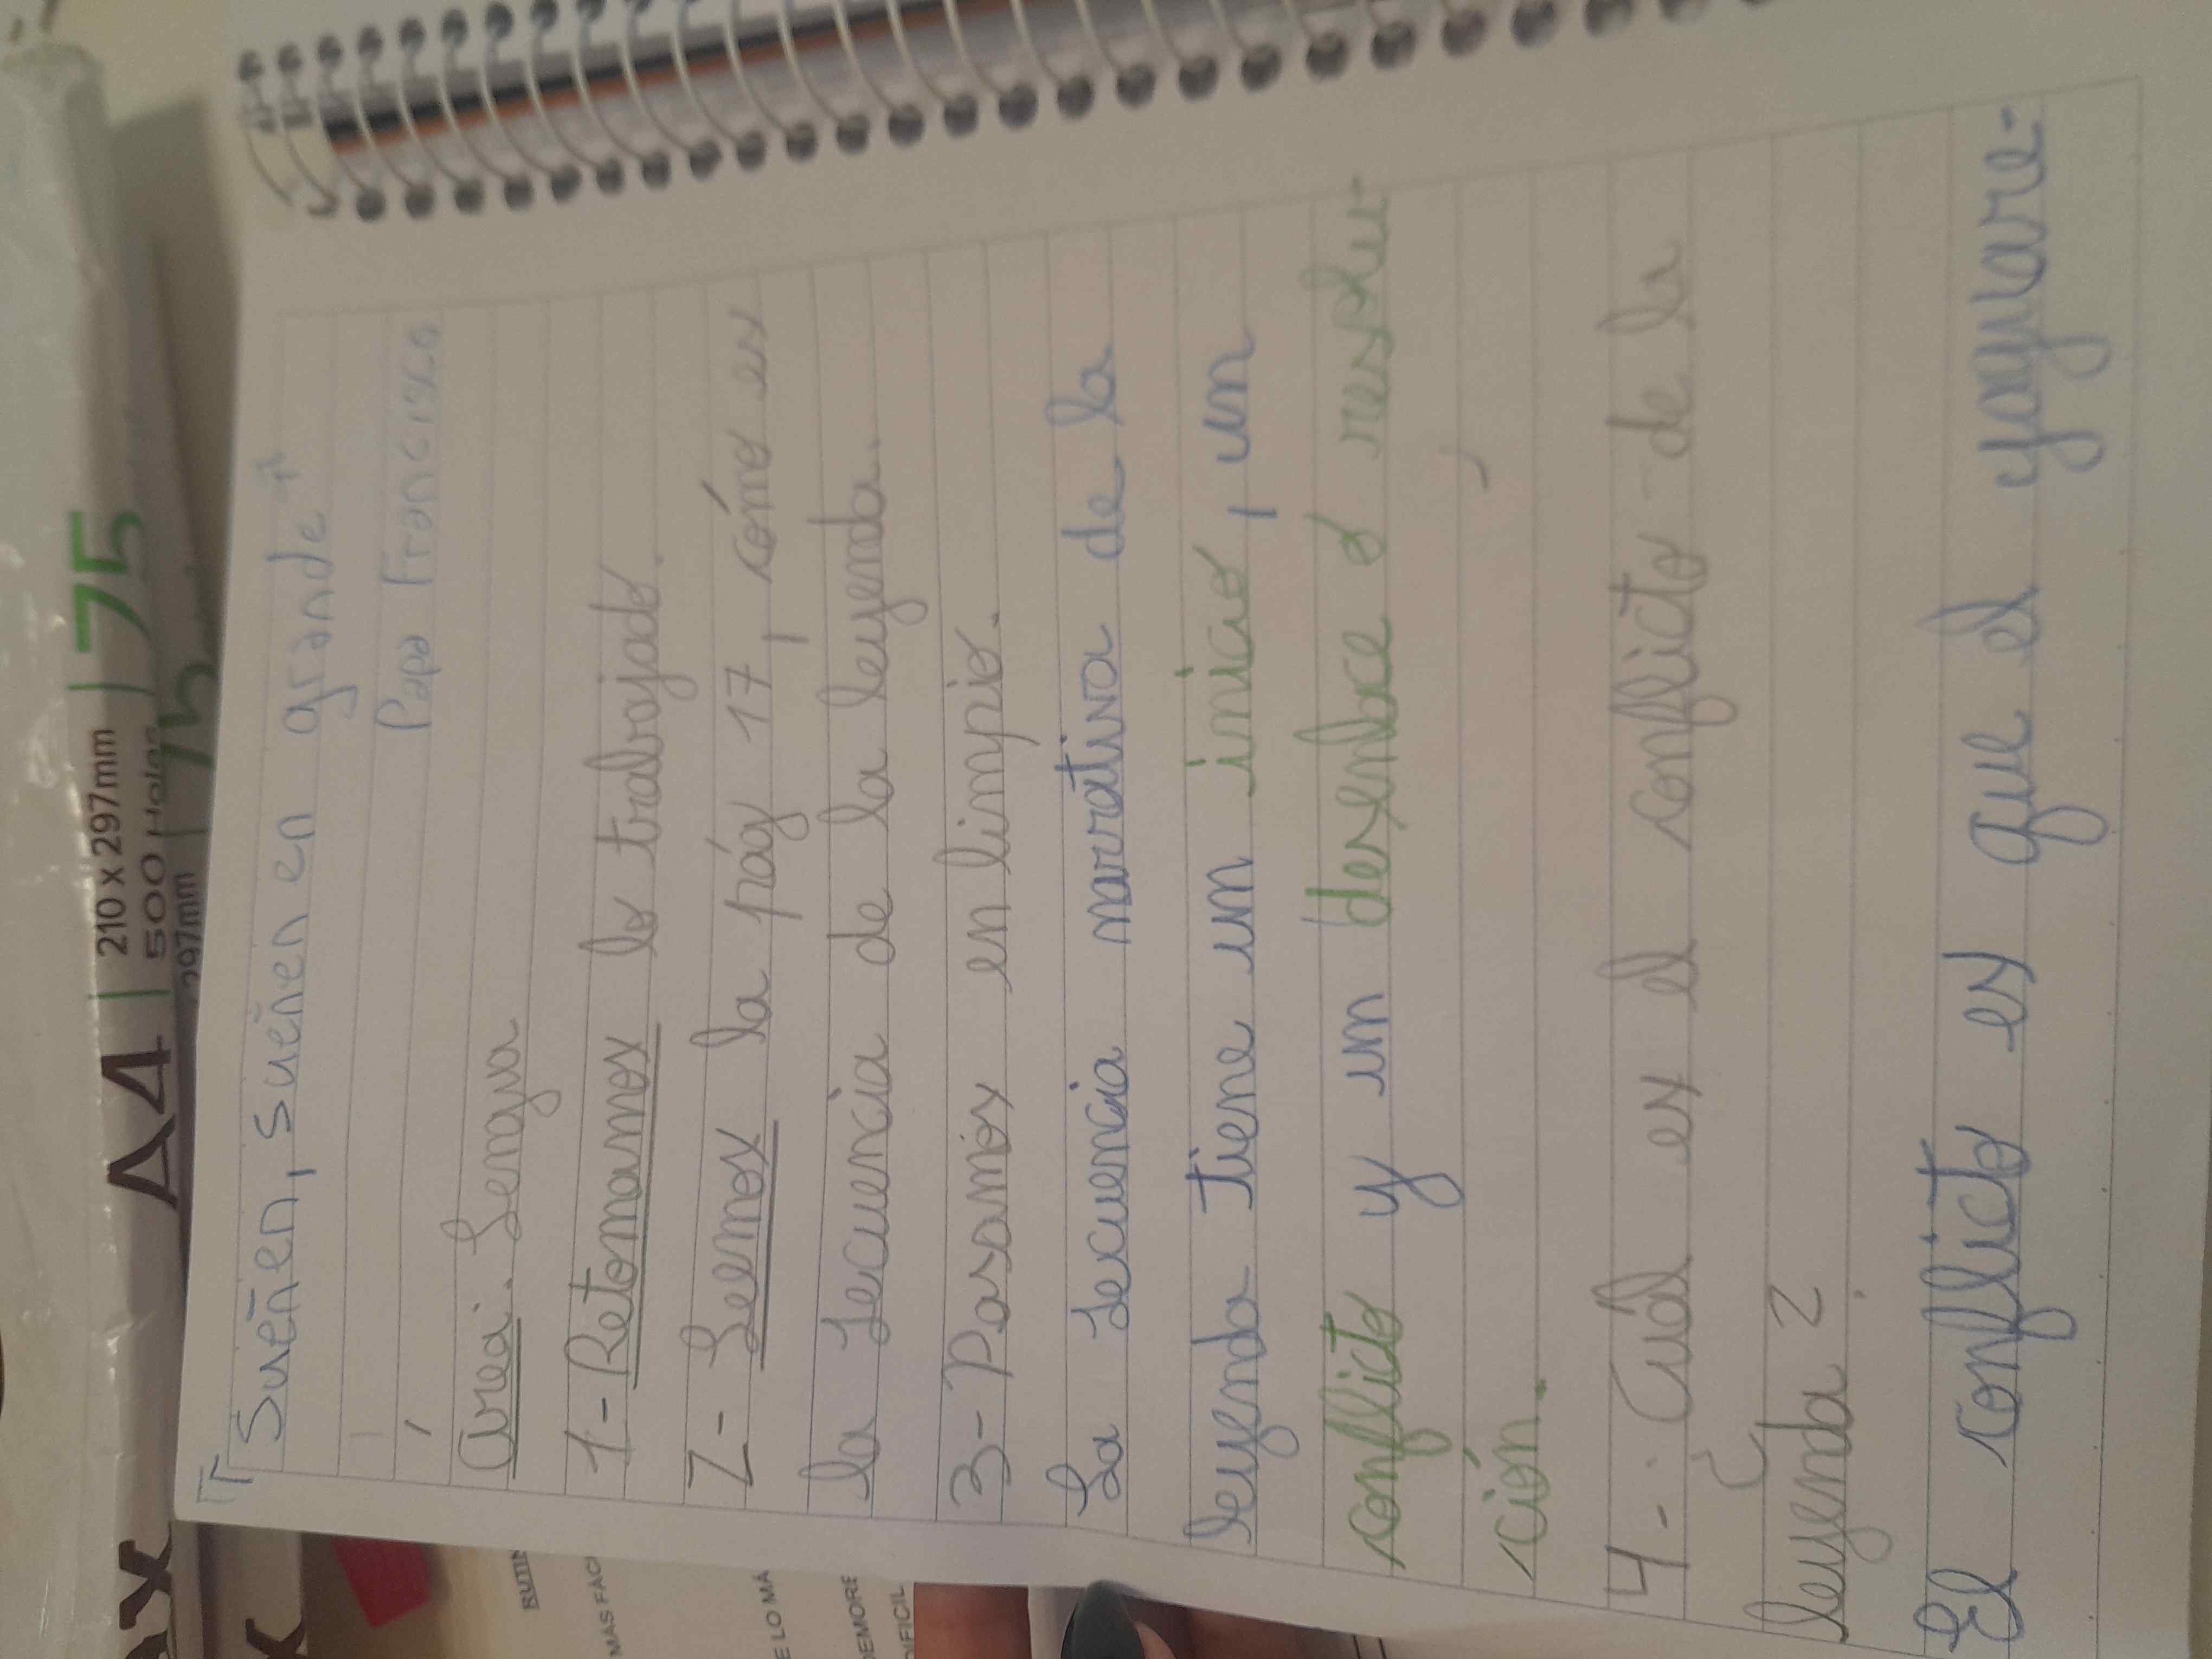 "Sueñen, sueñen en grande"
Papa Francisco
Área: Lengua
1-Retomamos lo trabajado.
2- Leemos la pág 17, cómo es
la secuencia de la leyenda.
3-Pasamos en limpio.
La secuencia narrativa de la
leyenda tiene un inicio, un
conflicto y un desenlace o resolu-
ción.
4-¿Cuál es el conflicto de la
leyenda?
El conflicto es que el yaguare-
A4 | 210 x 297mm | 75
500 Hojas
297mm | 75
RUTIN
MAS FÁCI
E LO MÁ
DEMORE
DIFICIL